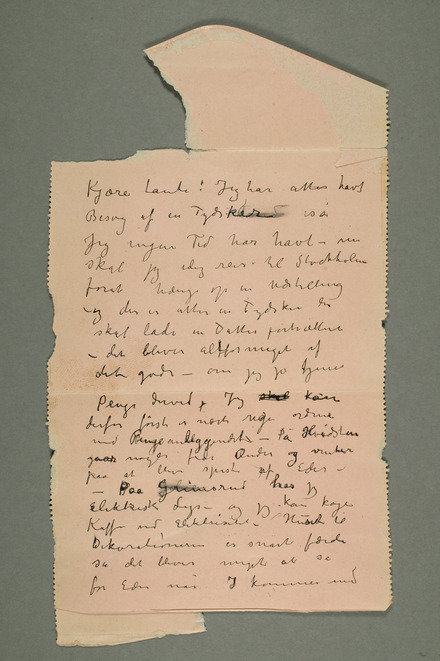 Kjære Tante! Jeg har atter havt
Besøg af en Tydsker så
Jeg ingen Tid har havt – nu
skal jeg idag reise til Stockholm
forat hænge op en Udstilling
– og der er atter en Tydsker der
skal lade en Datter portrættere
– det bliver altfor meget af
det gode – om jeg jo tjener
Penge derved, Jeg skal kan
derfor først i næste uge ordne
med Pengeanliggendet – På Hvidsten
gaar meget fede Ænder og venter
paa at blive spist af Eder –
– Paa Grimsrud har jeg
Elektrisk Lys – og jeg kan koge
Kaffe ved Elektricitet – til
Dekorationerne er snart færdig
så det bliver meget at se
for Eder når I kommer ned